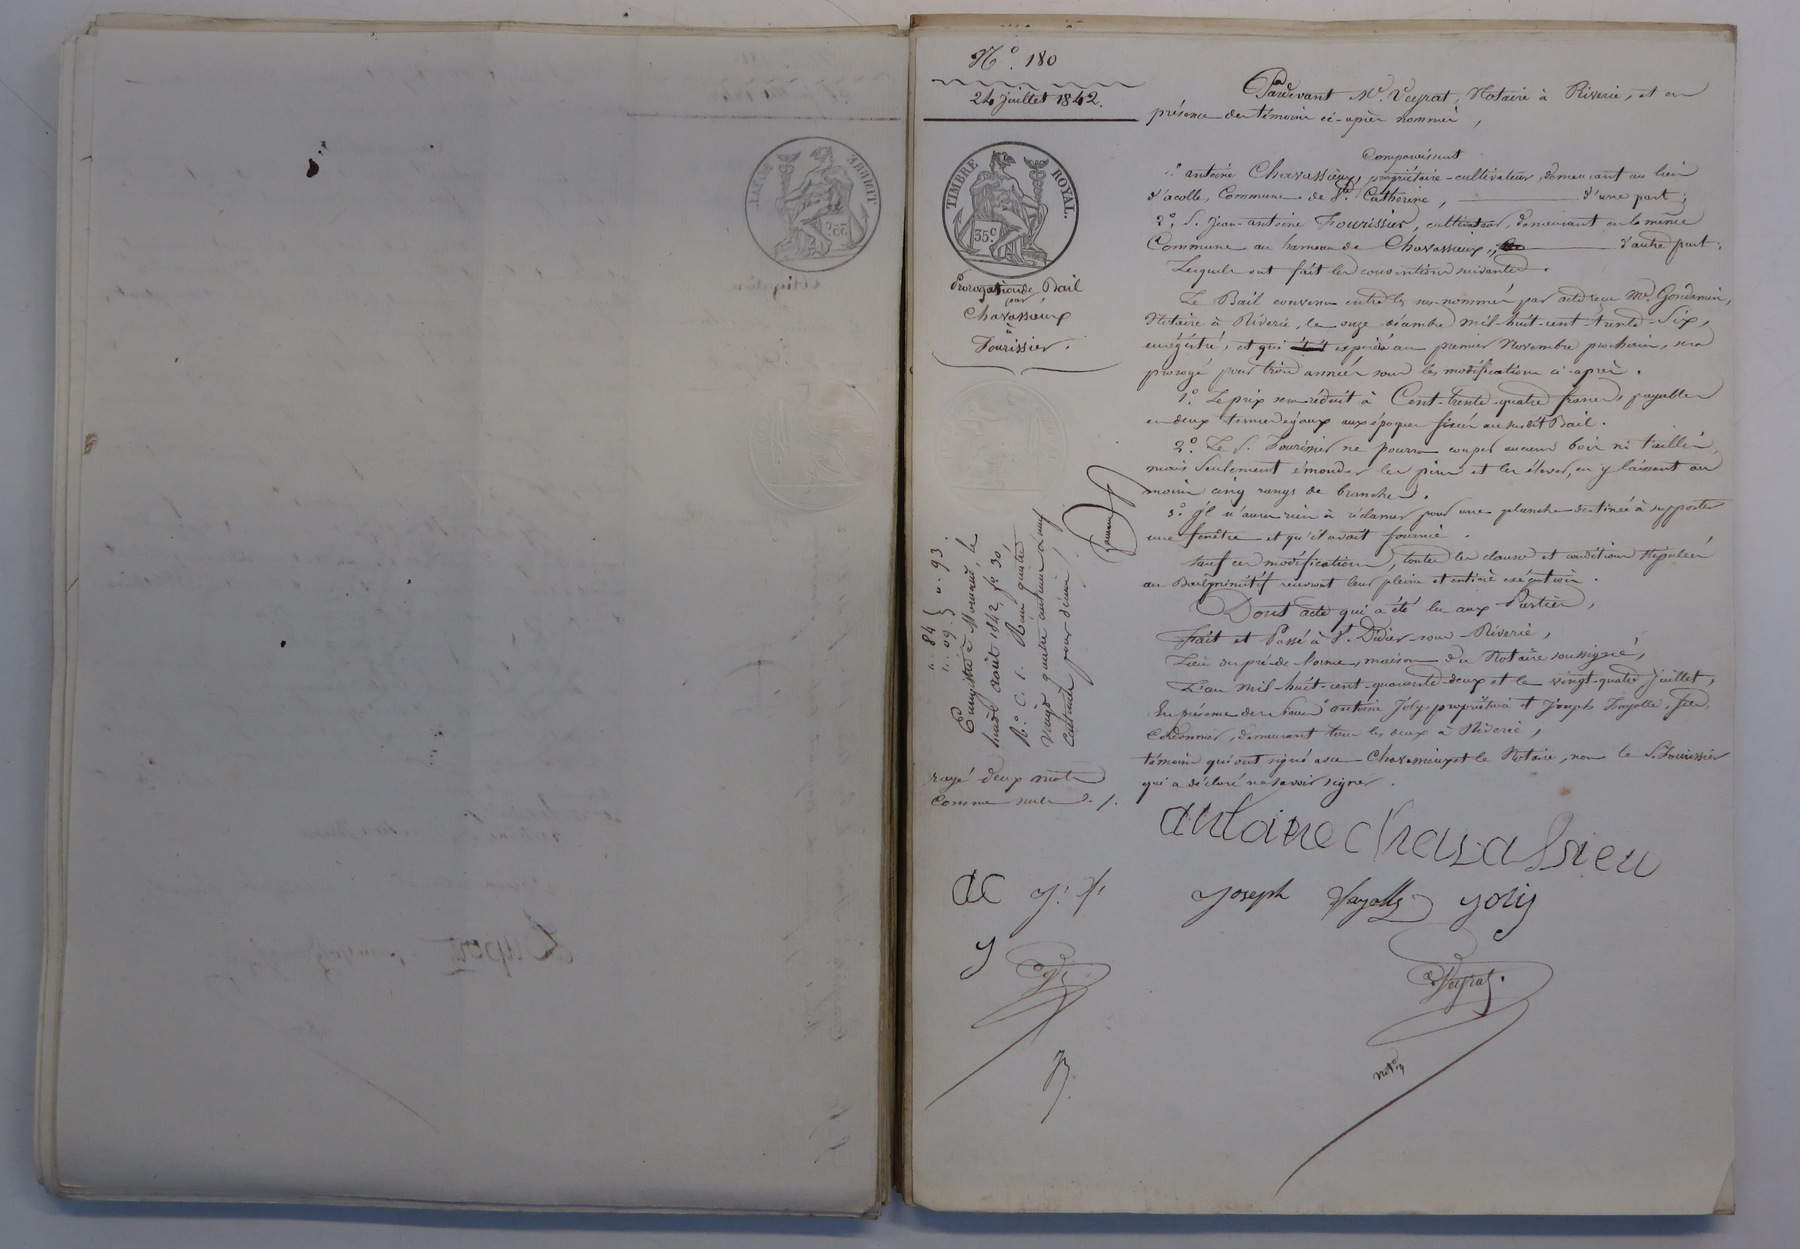 N.º 180
24 Juillet 1842.
TIMBRE ROYAL.
35 c.
Prorogation de Bail
par
Chavassieux
à
Fourissier.
Pardevant Mᵉ. Veyrat, Notaire à Riverie, et en
présence des témoins ci-après nommés,
Comparaissent
1.º antoine Chavassieux, propriétaire-cultivateur, demeurant au lieu
d'acolle, Commune de Ste. Catherine, d'une part;
2.º S. Jean-antoine Fourissier, cultivateur, demeurant en la même
Commune au hameau de Chavassieux, d'autre part;
Lesquels ont fait les conventions suivantes.
Le Bail convenu entre les sus-nommés par acte reçu Mᵉ. Gondamin,
Notaire à Riverie, le onze décembre mil-huit-cent-trente-Six,
enrégistré, et qui expire au premier Novembre prochain, sera
prorogé pour trois années sous les modifications ci-après.
1.º Le prix sera réduit à Cent-trente-quatre francs, payables
en deux termes égaux aux époques fixées au susdit Bail.
2.º Le S. Fourissier ne pourra couper aucuns bois ni taillis,
mais Seulement émonder les pins et les élever, en y laissant au
moins cinq rangs de branches.
3.º qu'il n'aura rien à réclamer pour une planche destinée à supporter
une fenêtre et qu'il avait fournie.
Sauf ces modifications, toutes les clauses et conditions stipulées
au Bail primitif recevront leur pleine et entière exécution.
Dont acte qui a été lu aux Parties,
Fait et Passé à St. Didier-sous-Riverie,
Lieu du pré-de maison du Notaire soussigné,
L'an mil-huit-cent-quarante-deux et le vingt-quatre Juillet,
En présence des sieurs antoine Joly, propriétaire et Joseph Fayolle, fils,
Cordonnier, demeurant tous les deux à Riverie,
témoins qui ont signé avec Chavassieux et le Notaire, non le S. Fourissier
qui a déclaré ne savoir signer.
84
09. } 93.
Enregistré à Mornant, le
août 1842, fº 30,
Rº. C. 1. Reçu quatre
vingt quatre centimes & neuf
centimes pour décime,
rayé deux mots
comme nuls
antoine chavassieu
Joseph fayolle Joly
AC J. F.
J
Veyrat.
notre